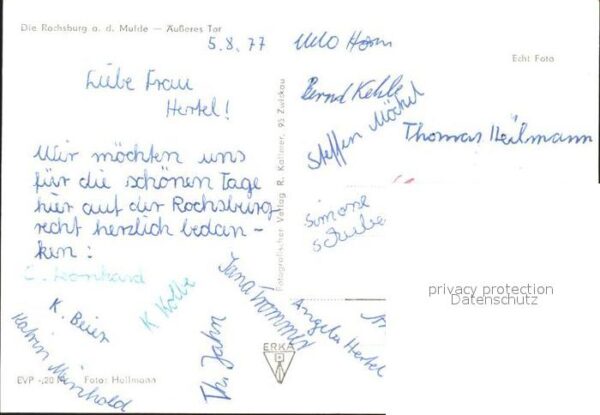 Die Rochsburg a. d. Mulde — Äußeres Tor
5.8.77
Echt Foto
Liebe Frau
Hertel!
Wir möchten uns
für die schönen Tage
hier auf der Rochsburg
recht herzlich bedan-
ken:
C. Leonhard
K. Beier
K. Kolbe
Katrin Meinhold
Th. Jahn
Jana Trommer
Angela Hertel
Udo Horn
Bernd Kehle
Steffen Möckel
Thomas Heilmann
Simone
Fotografischer Verlag R. Kallmer, 95 Zwickau
ERKA
EVP -,20
Foto: Hallmann
privacy protection
Datenschutz